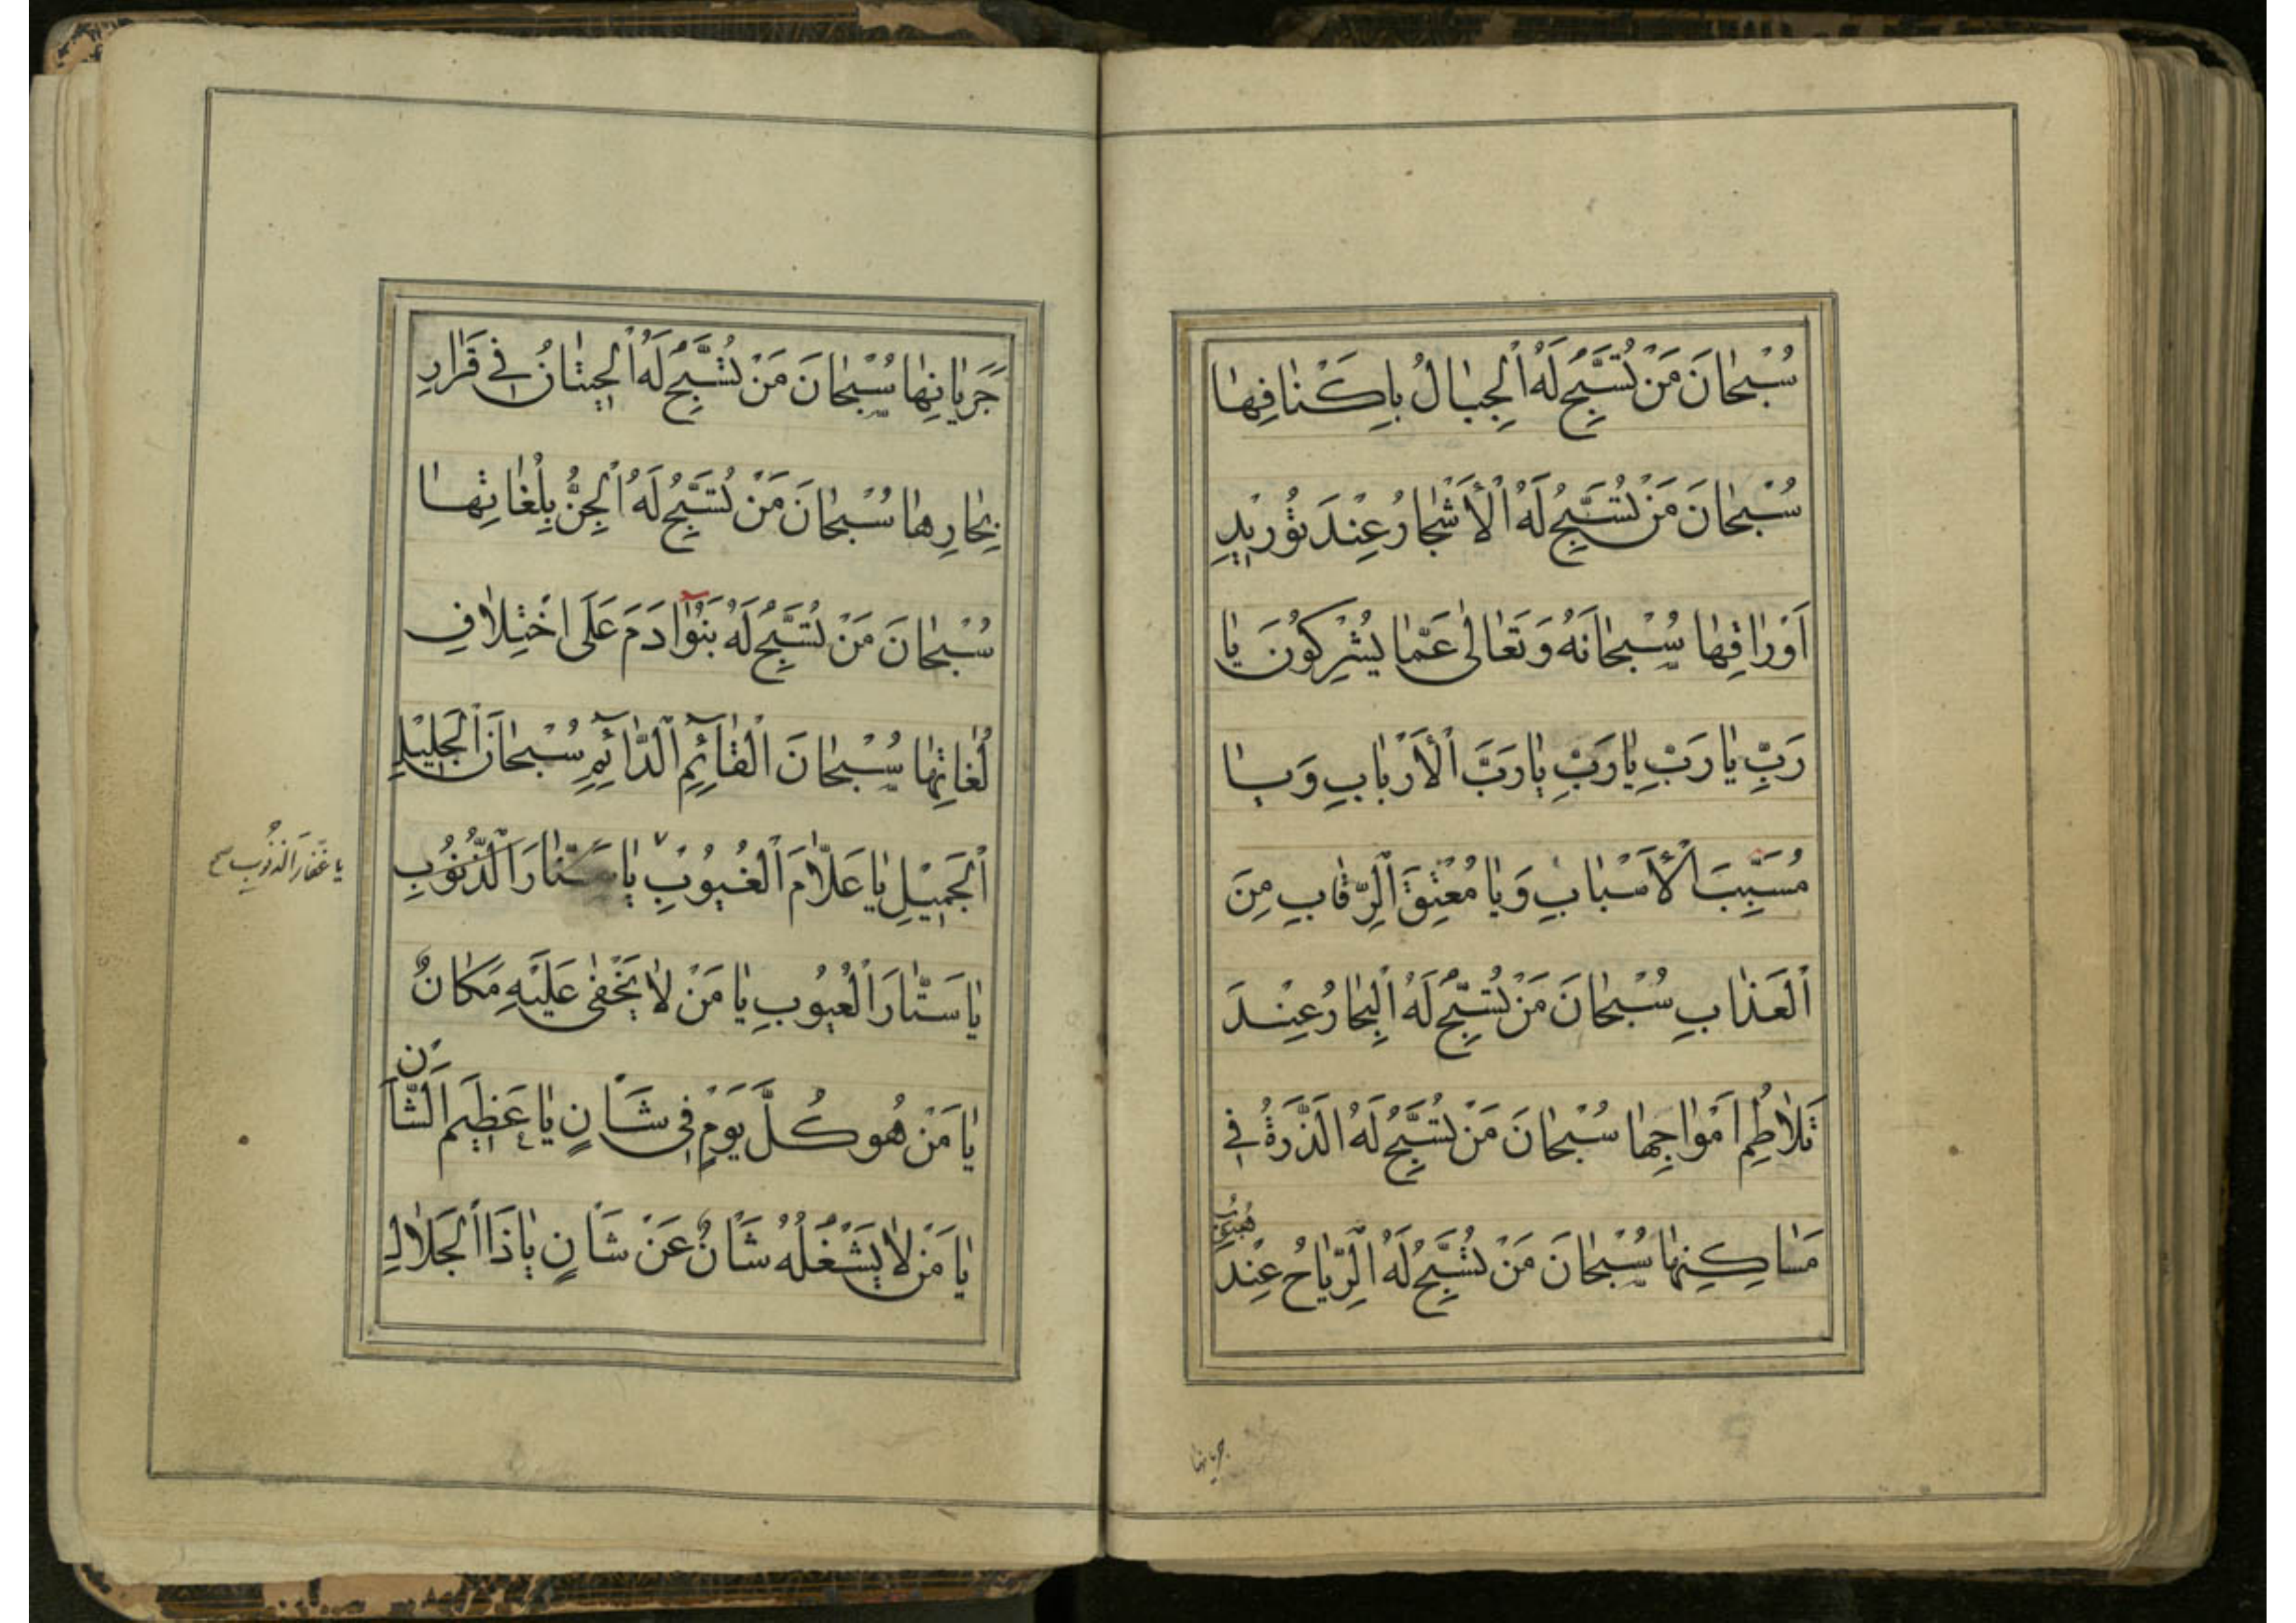 سُبْحَانَ مَنْ تُسَبِّحُ لَهُ الْجِبَالُ بِاَكْنَافِهَا
سُبْحَانَ مَنْ تُسَبِّحُ لَهُ الْأَشْجَارُ عِنْدَ تَوْرِيدِ
اَوْرَاقِهَا سُبْحَانَهُ وَتَعَالٰى عَمَّا يُشْرِكُونَ يَا
رَبِّ يَا رَبِّ يَا رَبِّ يَا رَبَّ الْأَرْبَابِ وَيَا
مُسَبِّبَ الْأَسْبَابِ وَيَا مُعْتِقَ الرِّقَابِ مِنَ
الْعَذَابِ سُبْحَانَ مَنْ تُسَبِّحُ لَهُ الْبِحَارُ عِنْدَ
تَلَاطُمِ اَمْوَاجِهَا سُبْحَانَ مَنْ تُسَبِّحُ لَهُ الذَّرَّةُ فِي
مَسَاكِنِهَا سُبْحَانَ مَنْ تُسَبِّحُ لَهُ الرِّيَاحُ عِنْدَ
هُبُوبِ
جريانها
جَرَيَانِهَا سُبْحَانَ مَنْ تُسَبِّحُ لَهُ الْحِيتَانُ فِي قَرَارِ
بِحَارِهَا سُبْحَانَ مَنْ تُسَبِّحُ لَهُ الْجِنُّ بِلُغَاتِهَا
سُبْحَانَ مَنْ تُسَبِّحُ لَهُ بَنُوا آدَمَ عَلَى اخْتِلَافِ
لُغَاتِهَا سُبْحَانَ الْقَآئِمِ الدَّآئِمِ سُبْحَانَ الْجَلِيْلِ
الْجَمِيْلِ يَا عَلَّامَ الْغُيُوبِ يَا سَتَّارَ الذُّنُوبِ
يا غَفّارَ الذنُوبِ صح
يَا سَتَّارَ الْعُيُوبِ يَا مَنْ لَا يَخْفٰى عَلَيْهِ مَكَانٌ
يَا مَنْ هُوَ كُلَّ يَوْمٍ فِي شَاْنٍ يَا عَظِيمَ الشَّاْنِ
يَا مَنْ لَا يَشْغَلُهُ شَاْنٌ عَنْ شَاْنٍ يَا ذَا الْجَلَالِ